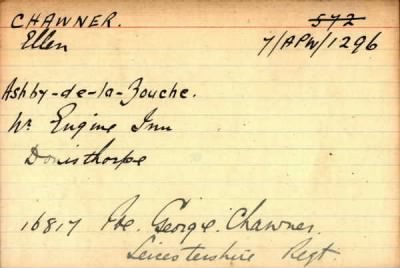 CHAWNER. 572
Ellen 7/APW/1296
Ashby-de-la-Zouche.
Nr. Engine Inn
Donisthorpe
16817 Pte. George Chawner.
Leicestershire Regt.